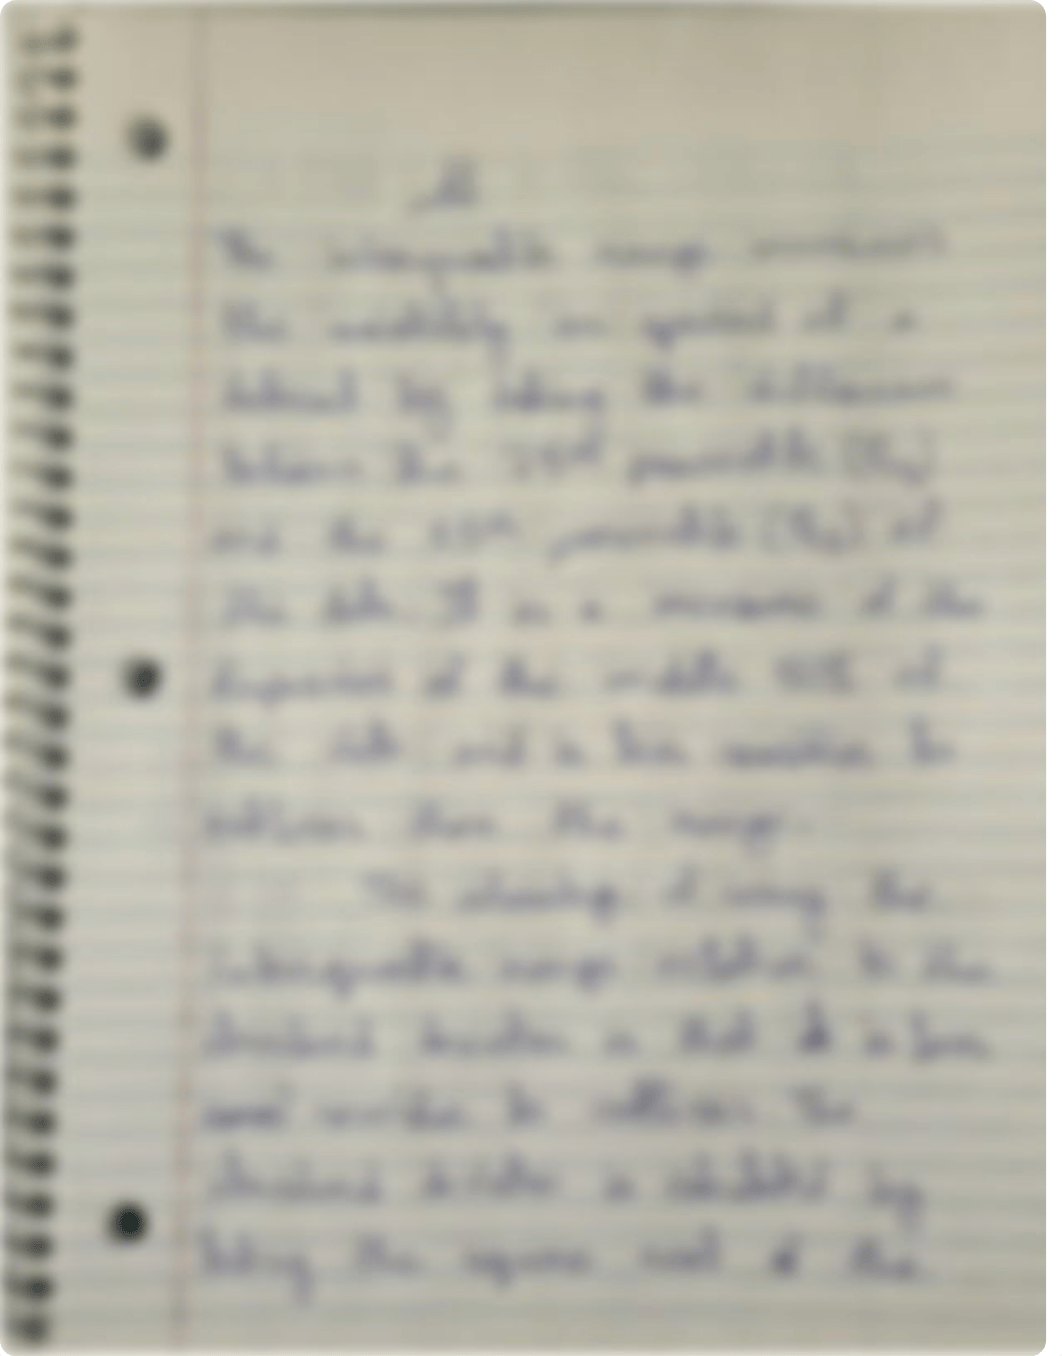 The interquartile range measures
the variability or spread of a
dataset by taking the difference
between the 75th percentile
and the 25th percentile of
the data. It is a measure of the
dispersion of the middle 50% of
the data and is less sensitive to
outliers than the range.
The advantage of using the
interquartile range relative to the
standard deviation is that it is less
sensitive to outliers. The
standard deviation is calculated by
taking the square root of the